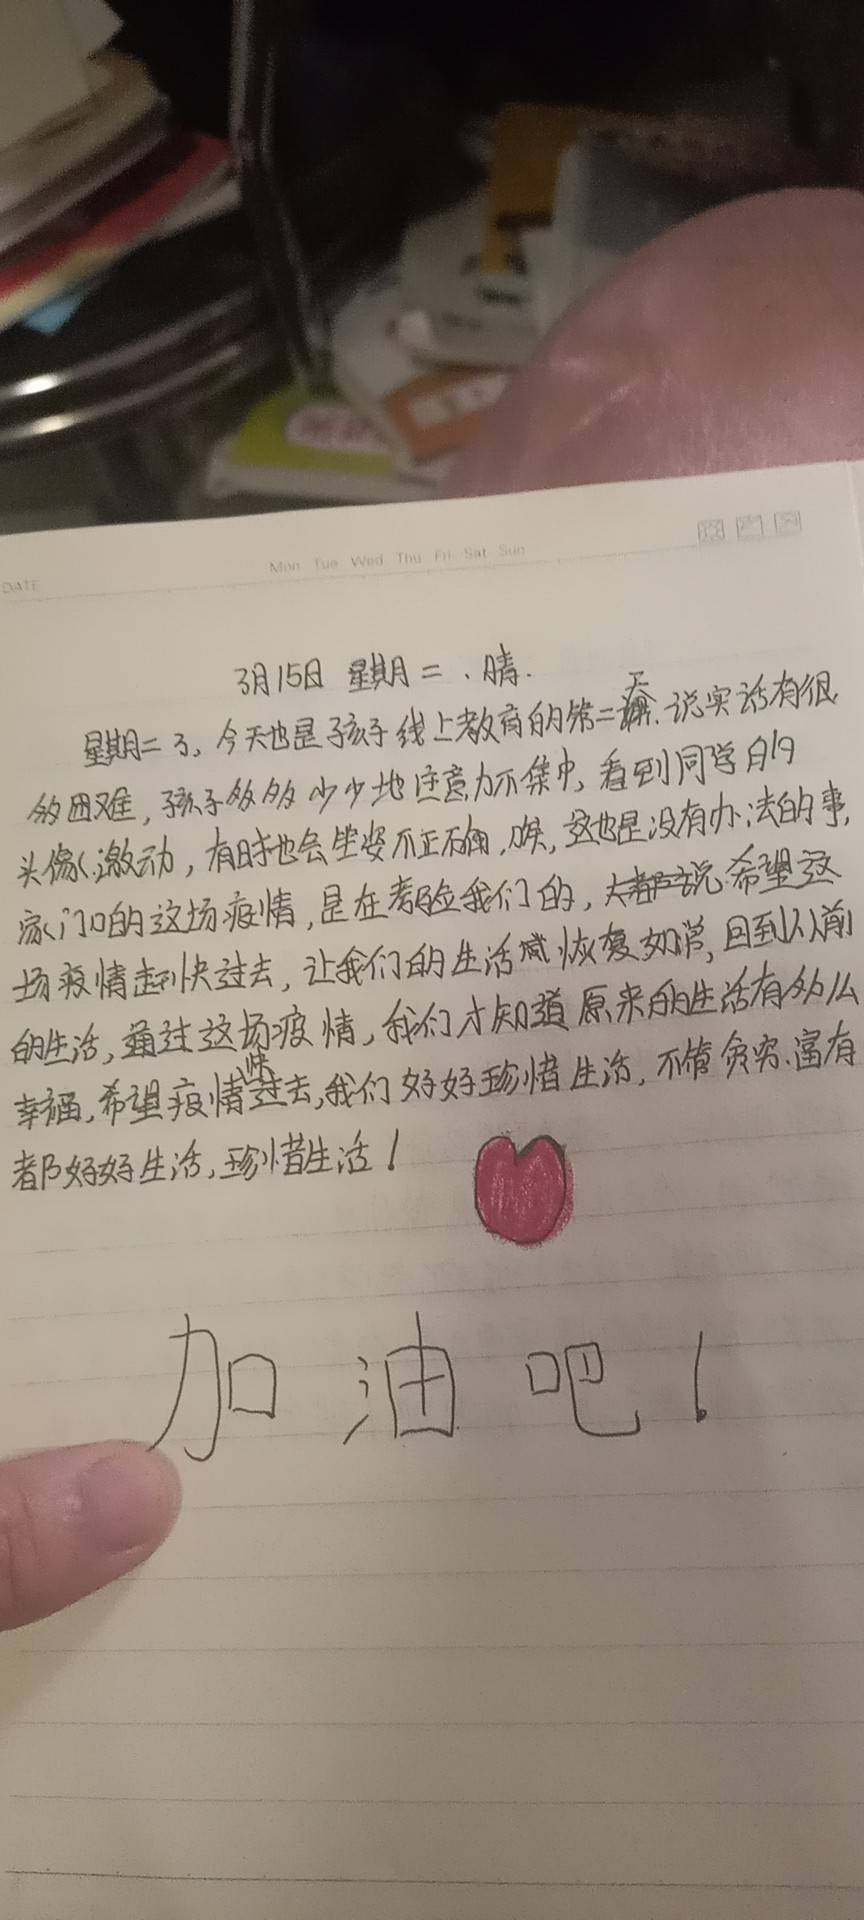 DATE
Mon Tue Wed Thu Fri Sat Sun
3月15日 星期二、晴.
星期二了,今天也是孩子线上教育的第二天.说实话有很
多困难,孩子多多少少地注意力不集中,看到同学的
头像激动,有时也会坐姿不正确,唉,这也是没有办法的事,
家门口的这场疫情,是在考验我们的,希望这
场疫情赶快过去,让我们的生活恢复如常,回到以前
的生活,通过这场疫情,我们才知道原来的生活有多么
幸福,希望疫情快过去,我们好好珍惜生活,不管贫穷、富有
都好好生活,珍惜生活!
加油吧!